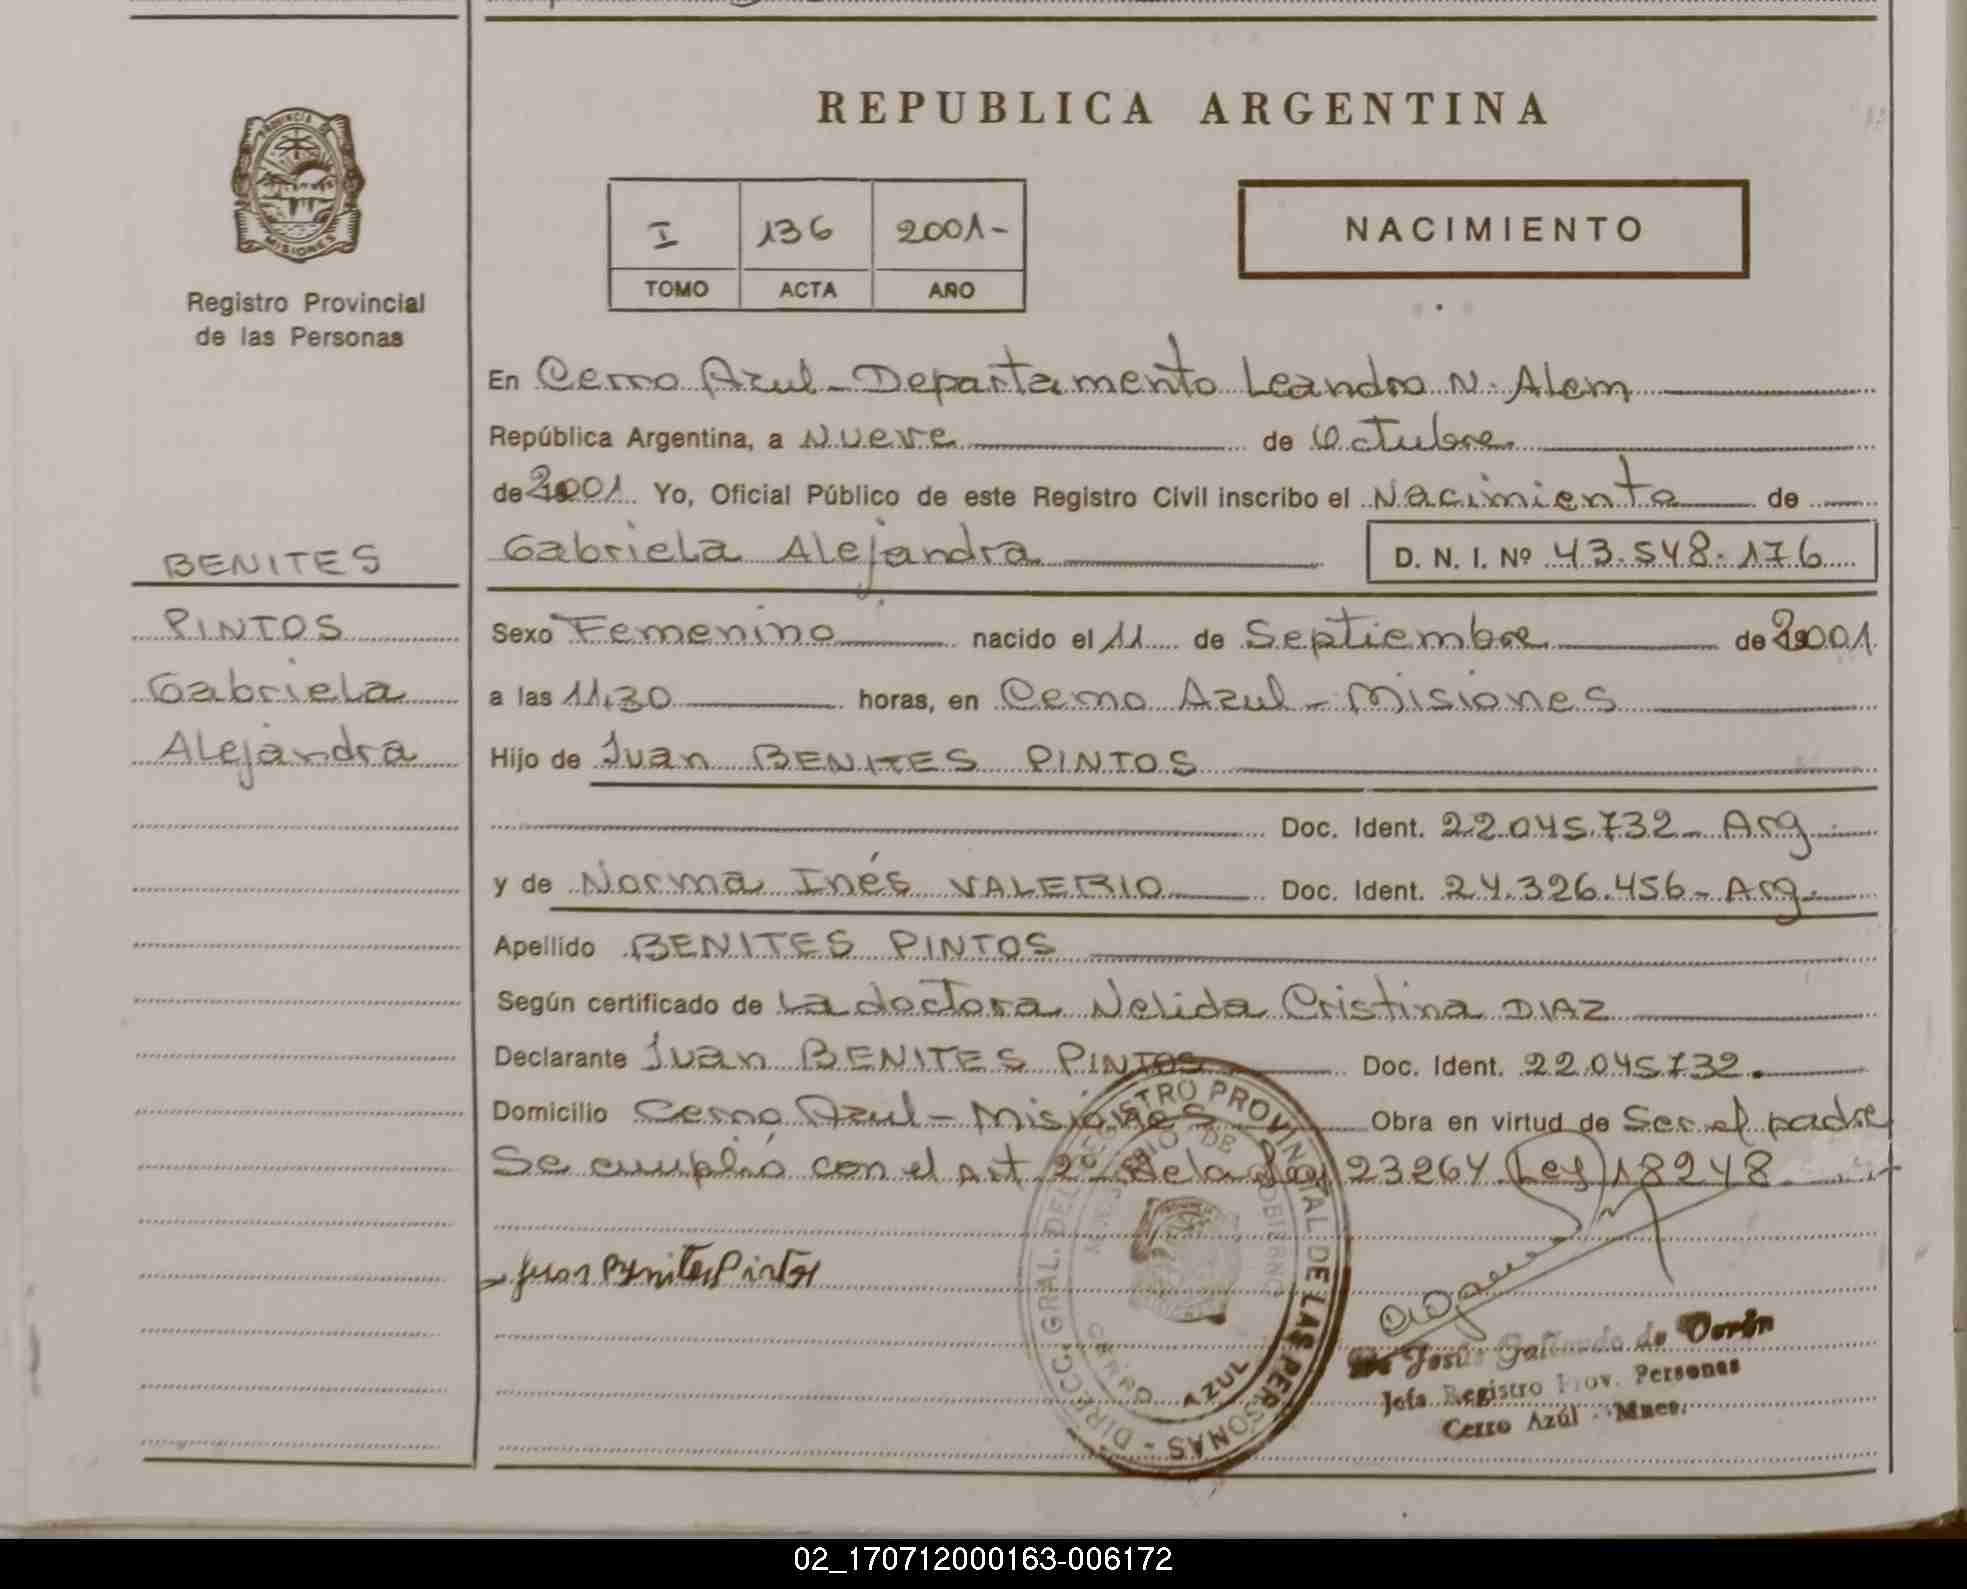 REPUBLICA ARGENTINA
PROVINCIA DE
MISIONES
Registro Provincial
de las Personas
I 136 2001-
TOMO ACTA AÑO
NACIMIENTO
En Cerro Azul - Departamento Leandro N. Alem
República Argentina, a Nueve de Octubre
de 2001 Yo, Oficial Público de este Registro Civil inscribo el Nacimiento de
Gabriela Alejandra D. N. I. Nº 43.548.176
BENITES
PINTOS
Gabriela
Alejandra
Sexo Femenino nacido el 11 de Septiembre de 2001
a las 11,30 horas, en Cerro Azul - Misiones
Hijo de Juan BENITES PINTOS
Doc. Ident. 22.045.732 - Arg.
y de Norma Inés VALERIO Doc. Ident. 24.326.456 - Arg.
Apellido BENITES PINTOS
Según certificado de la doctora Nelida Cristina DIAZ
Declarante Juan BENITES PINTOS Doc. Ident. 22.045.732.
Domicilio Cerro Azul - Misiones Obra en virtud de Ser el padre
Se cumplió con el art 2º de la Ley 23264 Ley 18248
Juan Benites Pintos
DIRECC. GRAL. DEL REGISTRO PROVINCIAL DE LAS PERSONAS -
AZUL
Jesús de
Jefa Registro Prov. Personas
Cerro Azúl - Mnes.
02_170712000163-006172